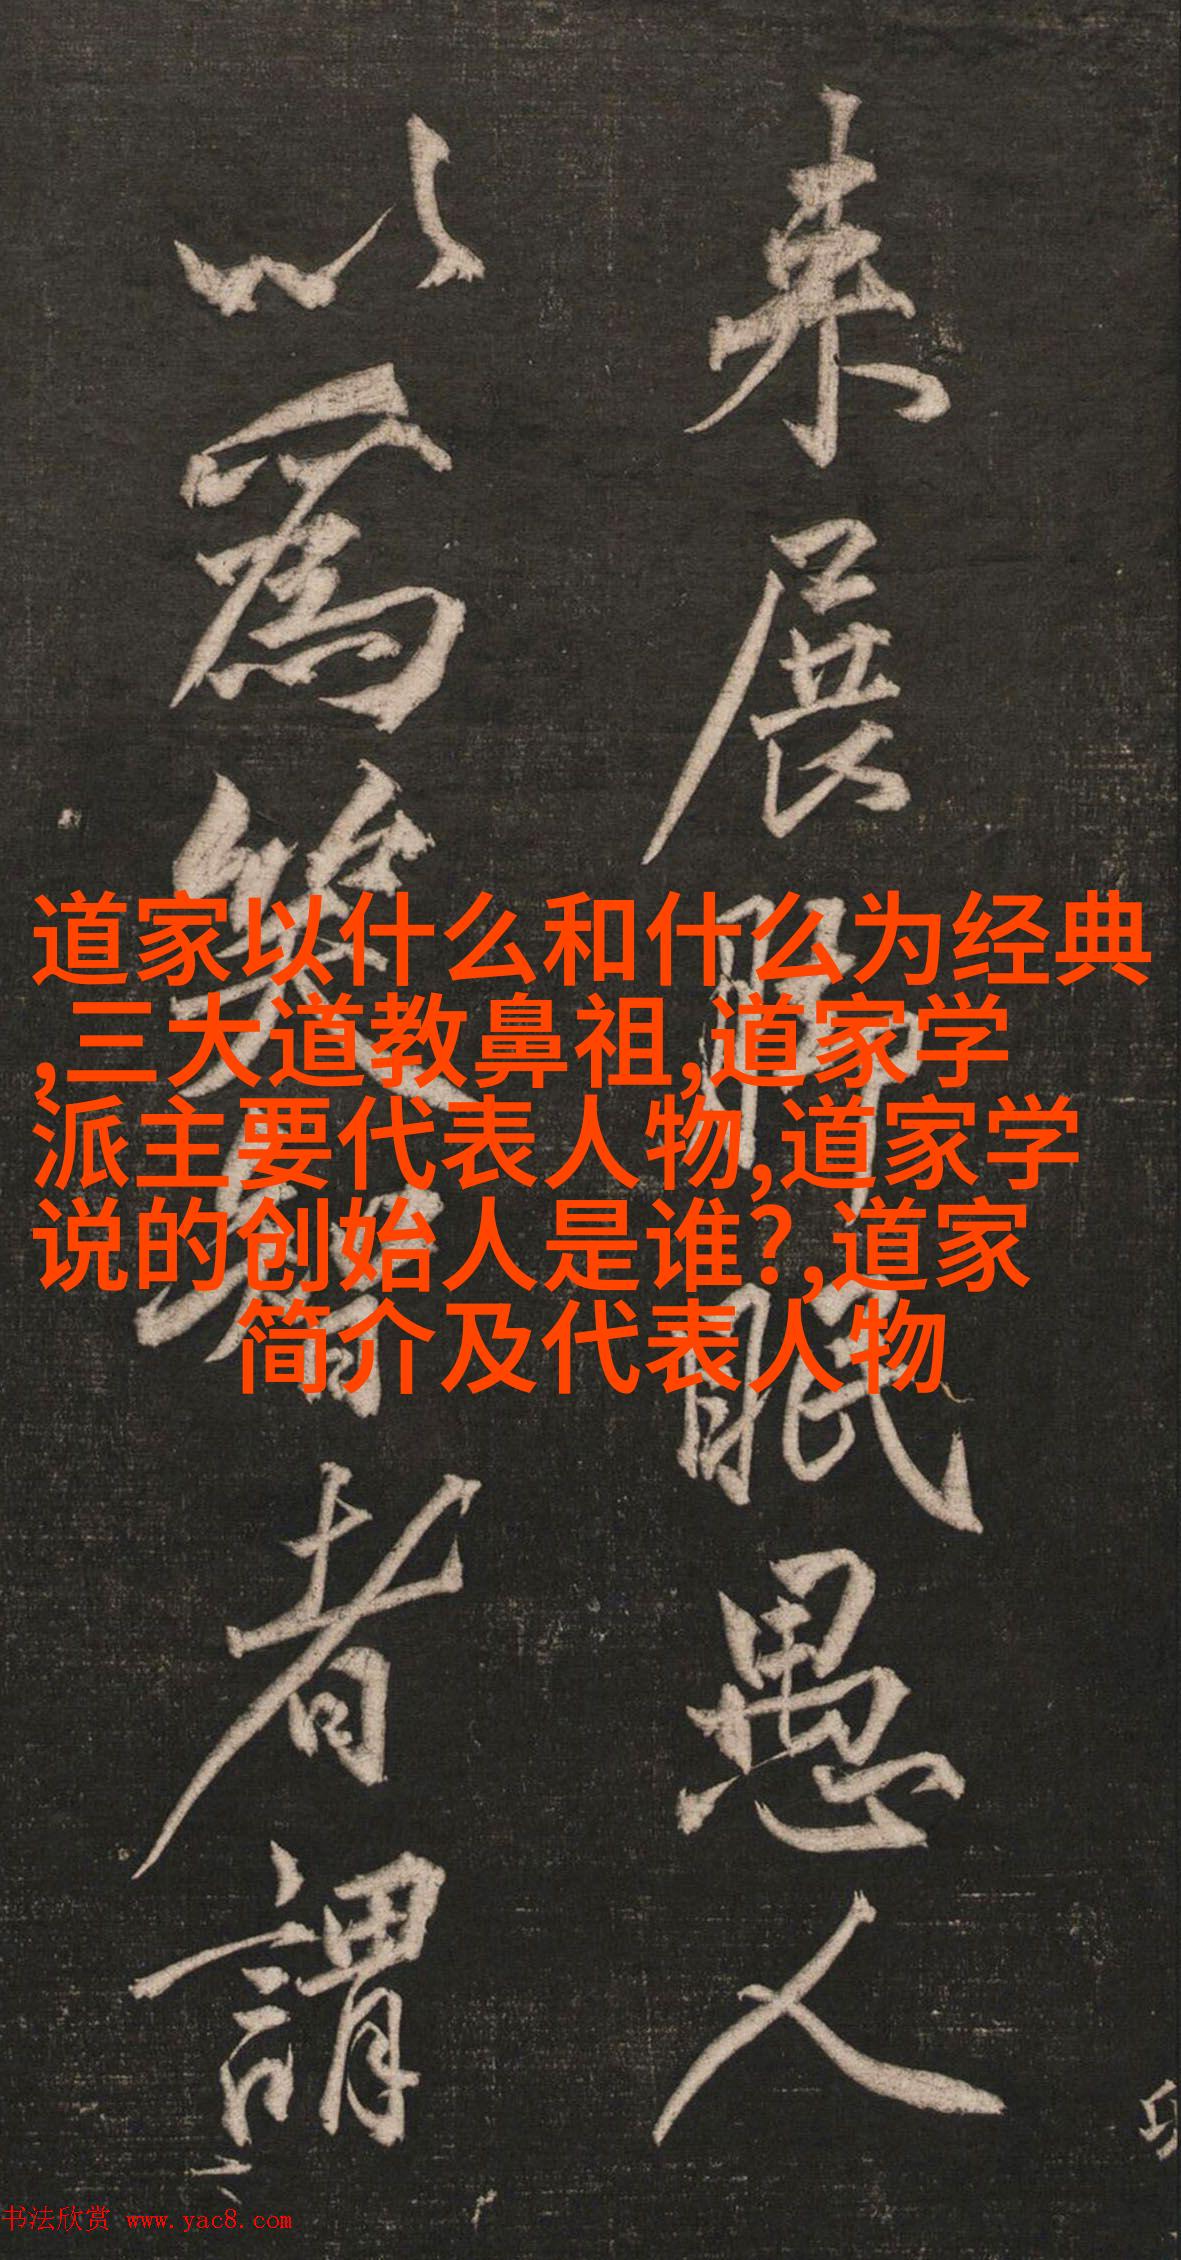 来展脚眠愚人
以為笑智者謂
道家以什么和什么为经典
,三大道教鼻祖,道家学
派主要代表人物,道家学
说的创始人是谁?,道家
简介及代表人物
书法欣赏 www.yac8.com